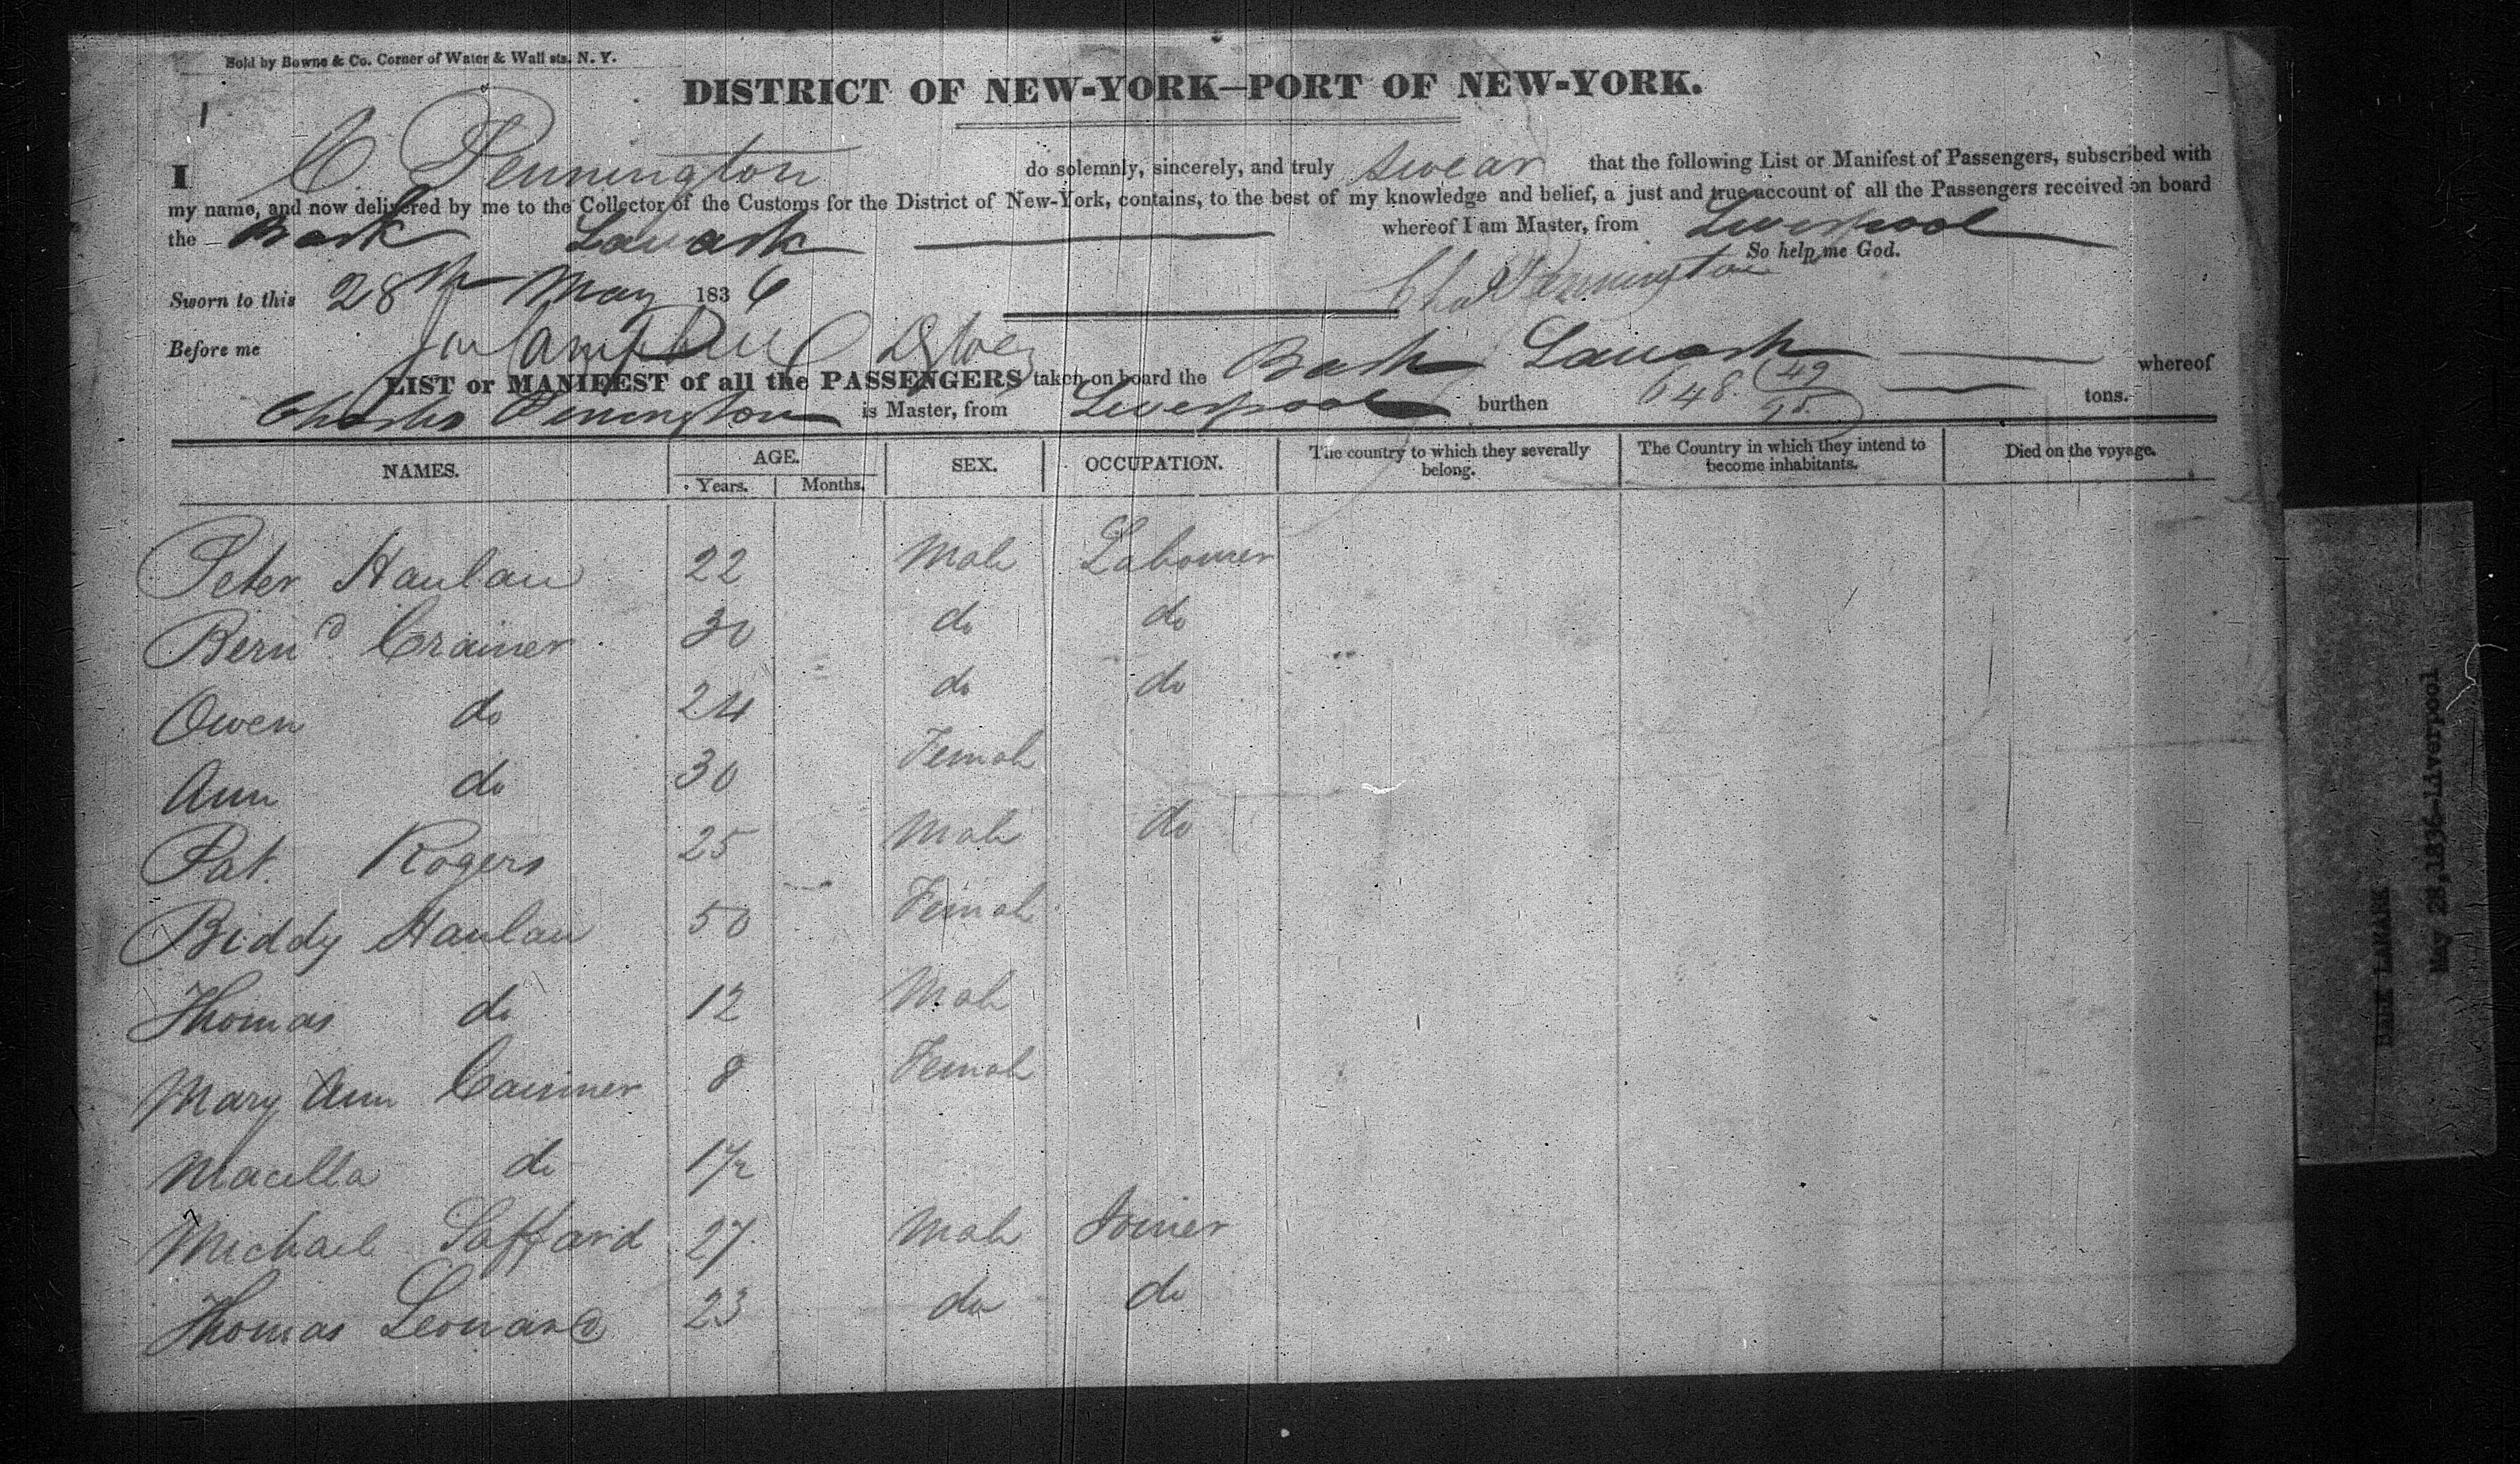 Sold by Bowne & Co. Corner of Water & Wall sts. N. Y.
DISTRICT OF NEW-YORK—PORT OF NEW-YORK.
I C. Pennington do solemnly, sincerely, and truly swear that the following List or Manifest of Passengers, subscribed with
my name, and now delivered by me to the Collector of the Customs for the District of New-York, contains, to the best of my knowledge and belief, a just and true account of all the Passengers received on board
the Bark Lanark whereof I am Master, from Liverpool
So help me God.
Sworn to this 28th May 1836 Chas Pennington
Before me Campbell
LIST or MANIFEST of all the PASSENGERS taken on board the Bark Lanark whereof
Charles Pennington is Master, from Liverpool burthen 648 49/95 tons.
NAMES. AGE. SEX. OCCUPATION. The country to which they severally belong. The Country in which they intend to become inhabitants. Died on the voyage.
Years. Months.
Peter Hanlan 22 Male Labourer
Bernd. Crainer 30 do do
Owen do 24 do do
Ann do 30 Female
Pat. Rogers 25 Male do
Biddy Hanlan 50 Female
Thomas do 12 Male
Mary Ann 8 Female
Macella do 1½
Michael Saffard 27 Male Joiner
Thomas Leonard 23 do do
LANARK
May 28, 1836-Liverpool